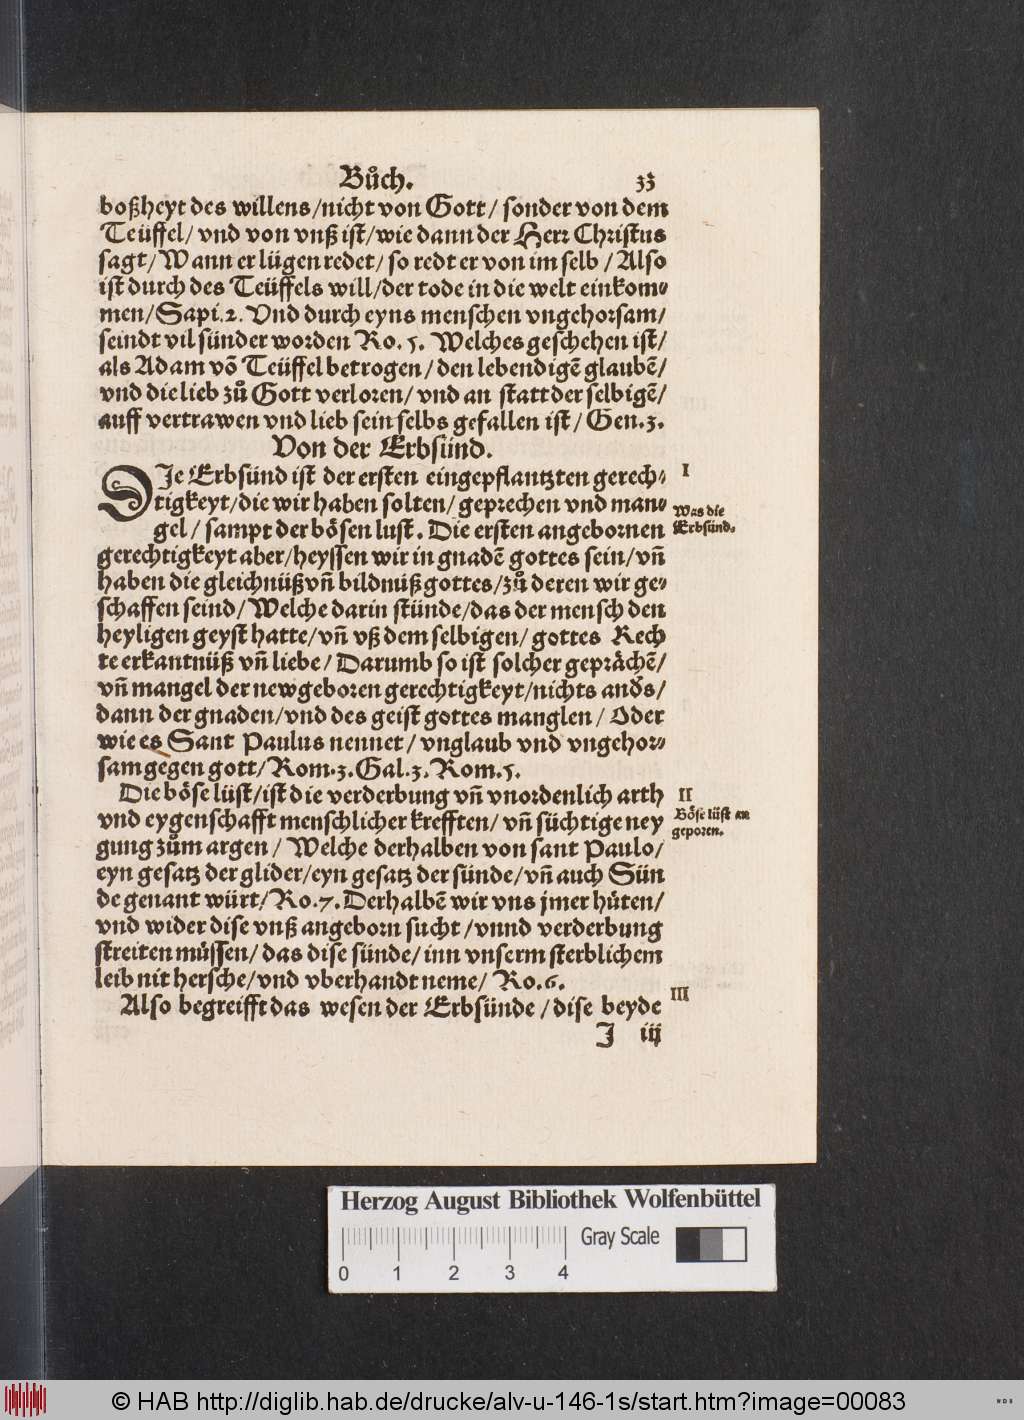 Bůch. 33
boßheyt des willens/nicht von Gott/ sonder von dem
Teüffel/ vnd von vnß ist/wie dann der Herr Christus
sagt/Wann er lügen redet/ so redt er von im selb / Also
ist durch des Teüffels will/der tode in die welt einkom⸗
men/Sapi.2. Vnd durch eyns menschen vngehorsam/
seindt vil sünder worden Ro. 5. Welches geschehen ist/
als Adam võ Teüffel betrogen/ den lebendigẽ glaubẽ/
vnd die lieb zů Gott verloren/ vnd an statt der selbigẽ/
auff vertrawen vnd lieb sein selbs gefallen ist/ Gen.3.
Von der Erbsünd.
DJe Erbsünd ist der ersten eingepflantzten gerech⸗
tigkeyt/die wir haben solten/ geprechen vnd man⸗
gel/ sampt der bösen lust. Die ersten angebornen
gerechtigkeyt aber/heyssen wir in gnadẽ gottes sein/vñ
haben die gleichnüß vñ bildnüß gottes/zů deren wir ge⸗
schaffen seind/Welche darin stünde/das der mensch den
heyligen geyst hatte/vñ vß dem selbigen/ gottes Rech
te erkantnüß vñ liebe/ Darumb so ist solcher geprächẽ/
vñ mangel der newgeboren gerechtigkeyt/nichts anďs/
dann der gnaden/vnd des geist gottes manglen/ Oder
wie es Sant Paulus nennet/ vnglaub vnd vngehor⸗
sam gegen gott/Rom.3.Gal.3.Rom.5.
Die böse lüst/ist die verderbung vñ vnordenlich arth
vnd eygenschafft menschlicher krefften/ vñ süchtige ney
gung zům argen/ Welche derhalben von sant Paulo/
eyn gesatz der glider/eyn gesatz der sünde/vñ auch Sün
de genant würt/Ro.7.Derhalbẽ wir vns jmer hüten/
vnd wider dise vnß angeborn sucht /vnnd verderbung
streiten müssen/ das dise sünde/ inn vnserm sterblichem
leib nit hersche/vnd vberhandt neme/ Ro.6.
Also begreifft das wesen der Erbsünde /dise beyde
J iij
I
Was die
Erbsünd.
II
Böse lüst an
geporen.
III
Herzog August Bibliothek Wolfenbüttel
Gray Scale
0 1 2 3 4
© HAB http://diglib.hab.de/drucke/alv-u-146-1s/start.htm?image=00083